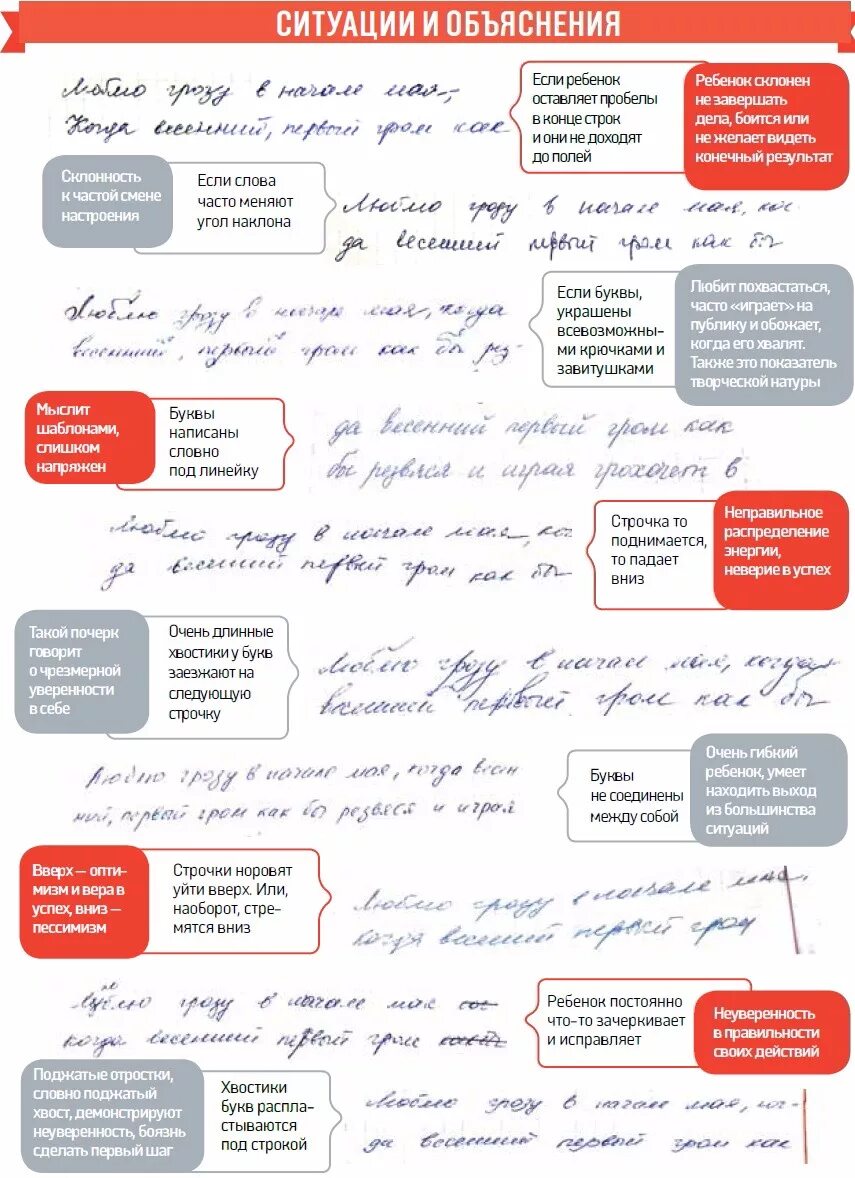 СИТУАЦИИ И ОБЪЯСНЕНИЯ
Люблю грозу в начале мая,
Когда весенний, первый гром как
Если ребенок
оставляет пробелы
в конце строк
и они не доходят
до полей
Ребенок склонен
не завершать
дела, боится или
не желает видеть
конечный результат
Склонность
к частой смене
настроения
Если слова
часто меняют
угол наклона
Люблю грозу в начале мая, ког-
да весенний первый гром как бы
Люблю грозу в начале мая, когда
весенний, первый гром как бы рез-
Если буквы,
украшены
всевозможны-
ми крючками и
завитушками
Любит похвастаться,
часто «играет» на
публику и обожает,
когда его хвалят.
Также это показатель
творческой натуры
Мыслит
шаблонами,
слишком
напряжен
Буквы
написаны
словно
под линейку
да весенний первый гром как
бы резвяся и играя грохочет в
Люблю грозу в начале мая, ког
да весенний первый гром как бы
Строчка то
поднимается,
то падает
вниз
Неправильное
распределение
энергии,
неверие в успех
Такой почерк
говорит
о чрезмерной
уверенности
в себе
Очень длинные
хвостики у букв
заезжают на
следующую
строчку
Люблю грозу в начале мая, когда
весенний первый гром как бы
Люблю грозу в начале мая, когда весен
ний, первый гром как бы резвяся и играя
Буквы
не соединены
между собой
Очень гибкий
ребенок, умеет
находить выход
из большинства
ситуаций
Вверх — опти-
мизм и вера в
успех, вниз —
пессимизм
Строчки норовят
уйти вверх. Или,
наоборот, стре-
мятся вниз
Люблю грозу в начале мая,
когда весенний первый гром
Люблю грозу в начале мая
когда весенний первый гром
Ребенок постоянно
что-то зачеркивает
и исправляет
Неуверенность
в правильности
своих действий
Поджатые отростки,
словно поджатый
хвост, демонстрируют
неуверенность, боязнь
сделать первый шаг
Хвостики
букв распла-
стываются
под строкой
Люблю грозу в начале мая, ког-
да весенний первый гром как